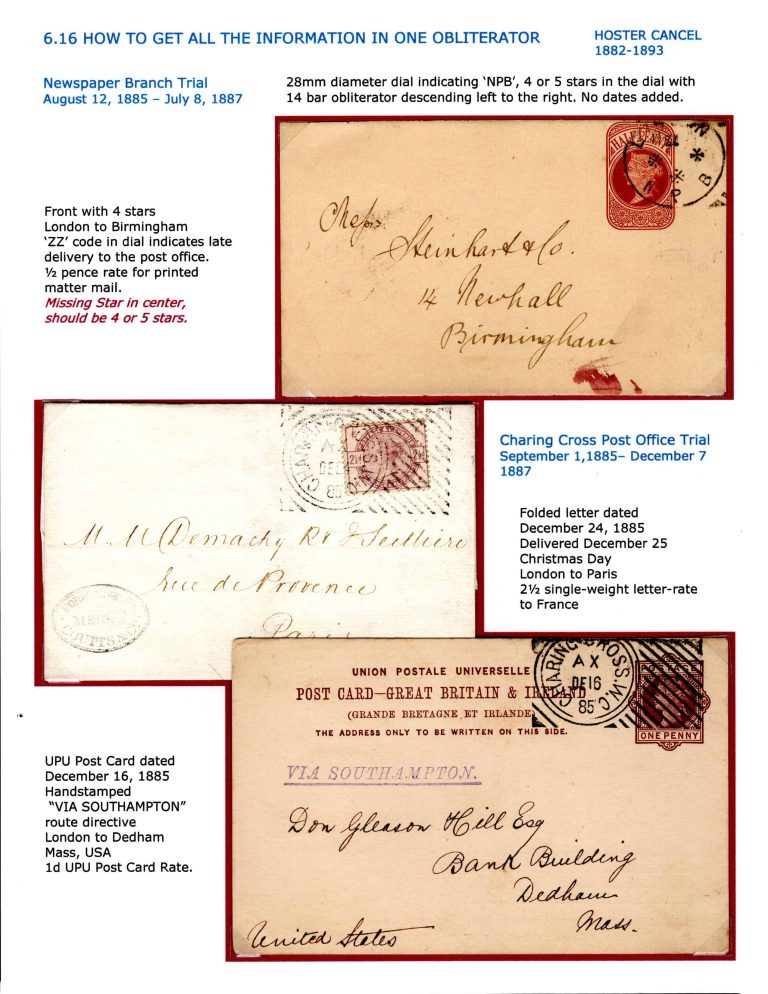 6.16 HOW TO GET ALL THE INFORMATION IN ONE OBLITERATOR
HOSTER CANCEL
1882-1893
Newspaper Branch Trial
August 12, 1885 – July 8, 1887
28mm diameter dial indicating ‘NPB’, 4 or 5 stars in the dial with
14 bar obliterator descending left to the right. No dates added.
HALFPENNY
N P B
Front with 4 stars
London to Birmingham
‘ZZ’ code in dial indicates late
delivery to the post office.
½ pence rate for printed
matter mail.
Missing Star in center,
should be 4 or 5 stars.
Messrs
Steinhart & Co.
14 Newhall
Birmingham
CHARING
AX
DE
85
Charing Cross Post Office Trial
September 1,1885– December 7
1887
Folded letter dated
December 24, 1885
Delivered December 25
Christmas Day
London to Paris
2½ single-weight letter-rate
to France
M. M. Demachy Rt & J Seilliere
Rue de Provence
Paris
MESSRS
COUTTS & Co
UNION POSTALE UNIVERSELLE
POST CARD–GREAT BRITAIN & IRELAND
(GRANDE BRETAGNE ET IRLANDE)
THE ADDRESS ONLY TO BE WRITTEN ON THIS SIDE.
CHARING CROSS.W.C.
AX
DE16
85
ONE PENNY
VIA SOUTHAMPTON.
Don Gleason Hill Esq
Bank Building
Dedham
Mass.
United States
UPU Post Card dated
December 16, 1885
Handstamped
“VIA SOUTHAMPTON”
route directive
London to Dedham
Mass, USA
1d UPU Post Card Rate.